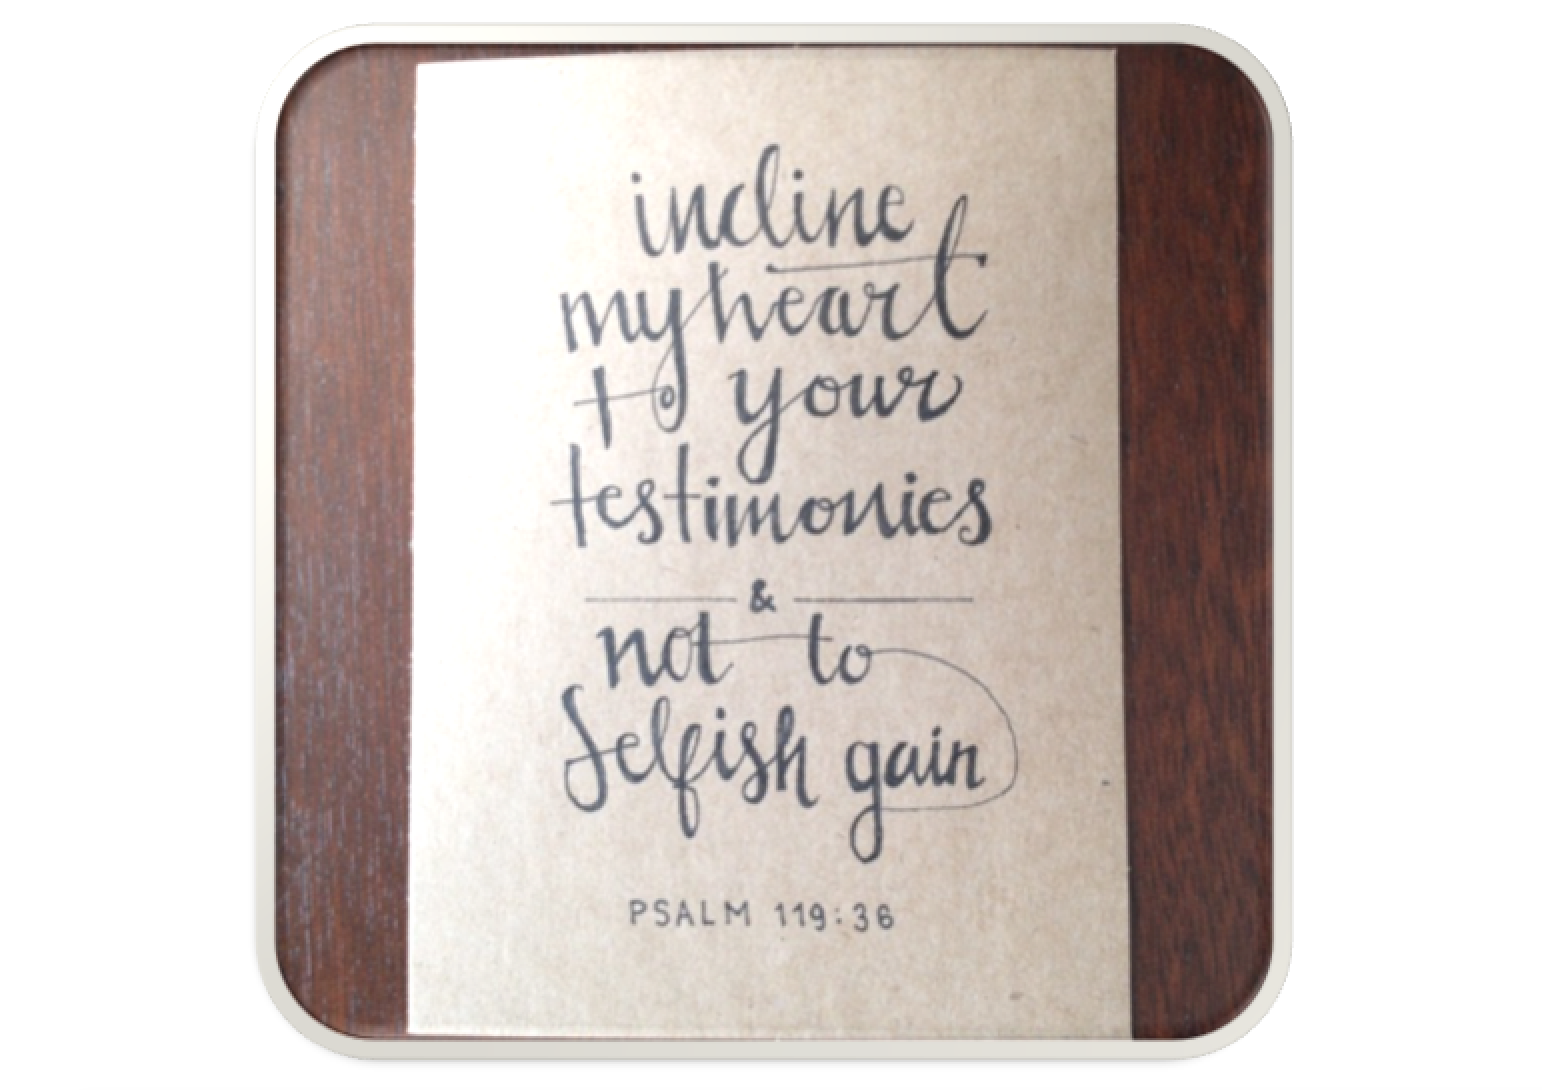 incline
my heart
to your
testimonies
&
not to
selfish gain
PSALM 119:36